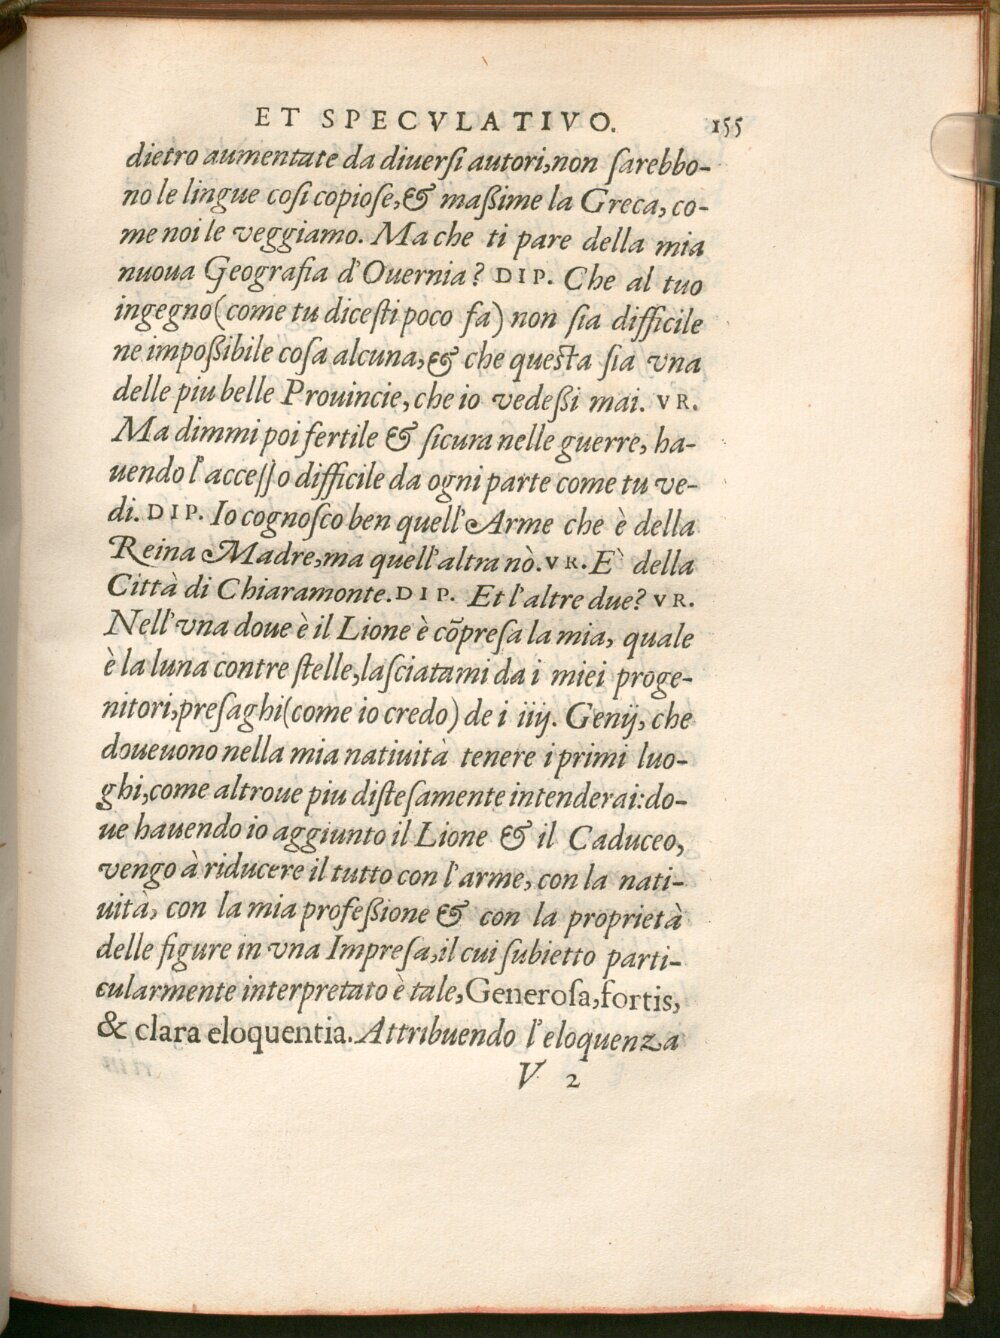 ET SPECVLATIVO. 155
dietro aumentate da diuerſi autori, non ſarebbo-
no le lingue coſi copioſe, & maßime la Greca, co-
me noi le veggiamo. Ma che ti pare della mia
nuoua Geografia d'Ouernia? DIP. Che al tuo
ingegno (come tu diceſti poco fa) non ſia difficile
ne impoßibile coſa alcuna, & che queſta ſia vna
delle piu belle Prouincie, che io vedeßi mai. VR.
Ma dimmi poi fertile & ſicura nelle guerre, ha-
uendo l'acceſſo difficile da ogni parte come tu ve-
di. DIP. Io cognoſco ben quell'Arme che è della
Reina Madre, ma quell'altra nò. VR. È della
Città di Chiaramonte. DIP. Et l'altre due? VR.
Nell'vna doue è il Lione è cōpreſa la mia, quale
è la luna con tre ſtelle, laſciatami da i miei proge-
nitori, preſaghi (come io credo) de i iiij. Genij, che
doueuono nella mia natiuità tenere i primi luo-
ghi, come altroue piu diſteſamente intenderai: do-
ue hauendo io aggiunto il Lione & il Caduceo,
vengo à riducere il tutto con l'arme, con la nati-
uità, con la mia profeßione & con la proprietà
delle figure in vna Impreſa, il cui ſubietto parti-
cularmente interpretato è tale, Generoſa, fortis,
& clara eloquentia. Attribuendo l'eloquenza
V 2